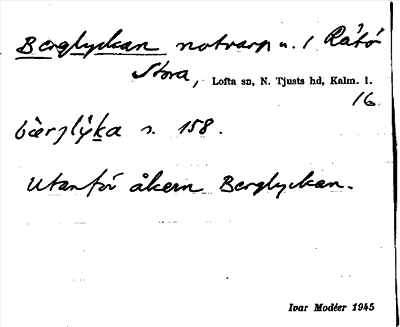 Berglyckan notvarp u. / Rätö
Stora, Lofta sn, N. Tjusts hd, Kalm. l.
16
bä̀rjlỳka s. 158.
Utanför åkern Berglyckan.
Ivar Modéer 1945